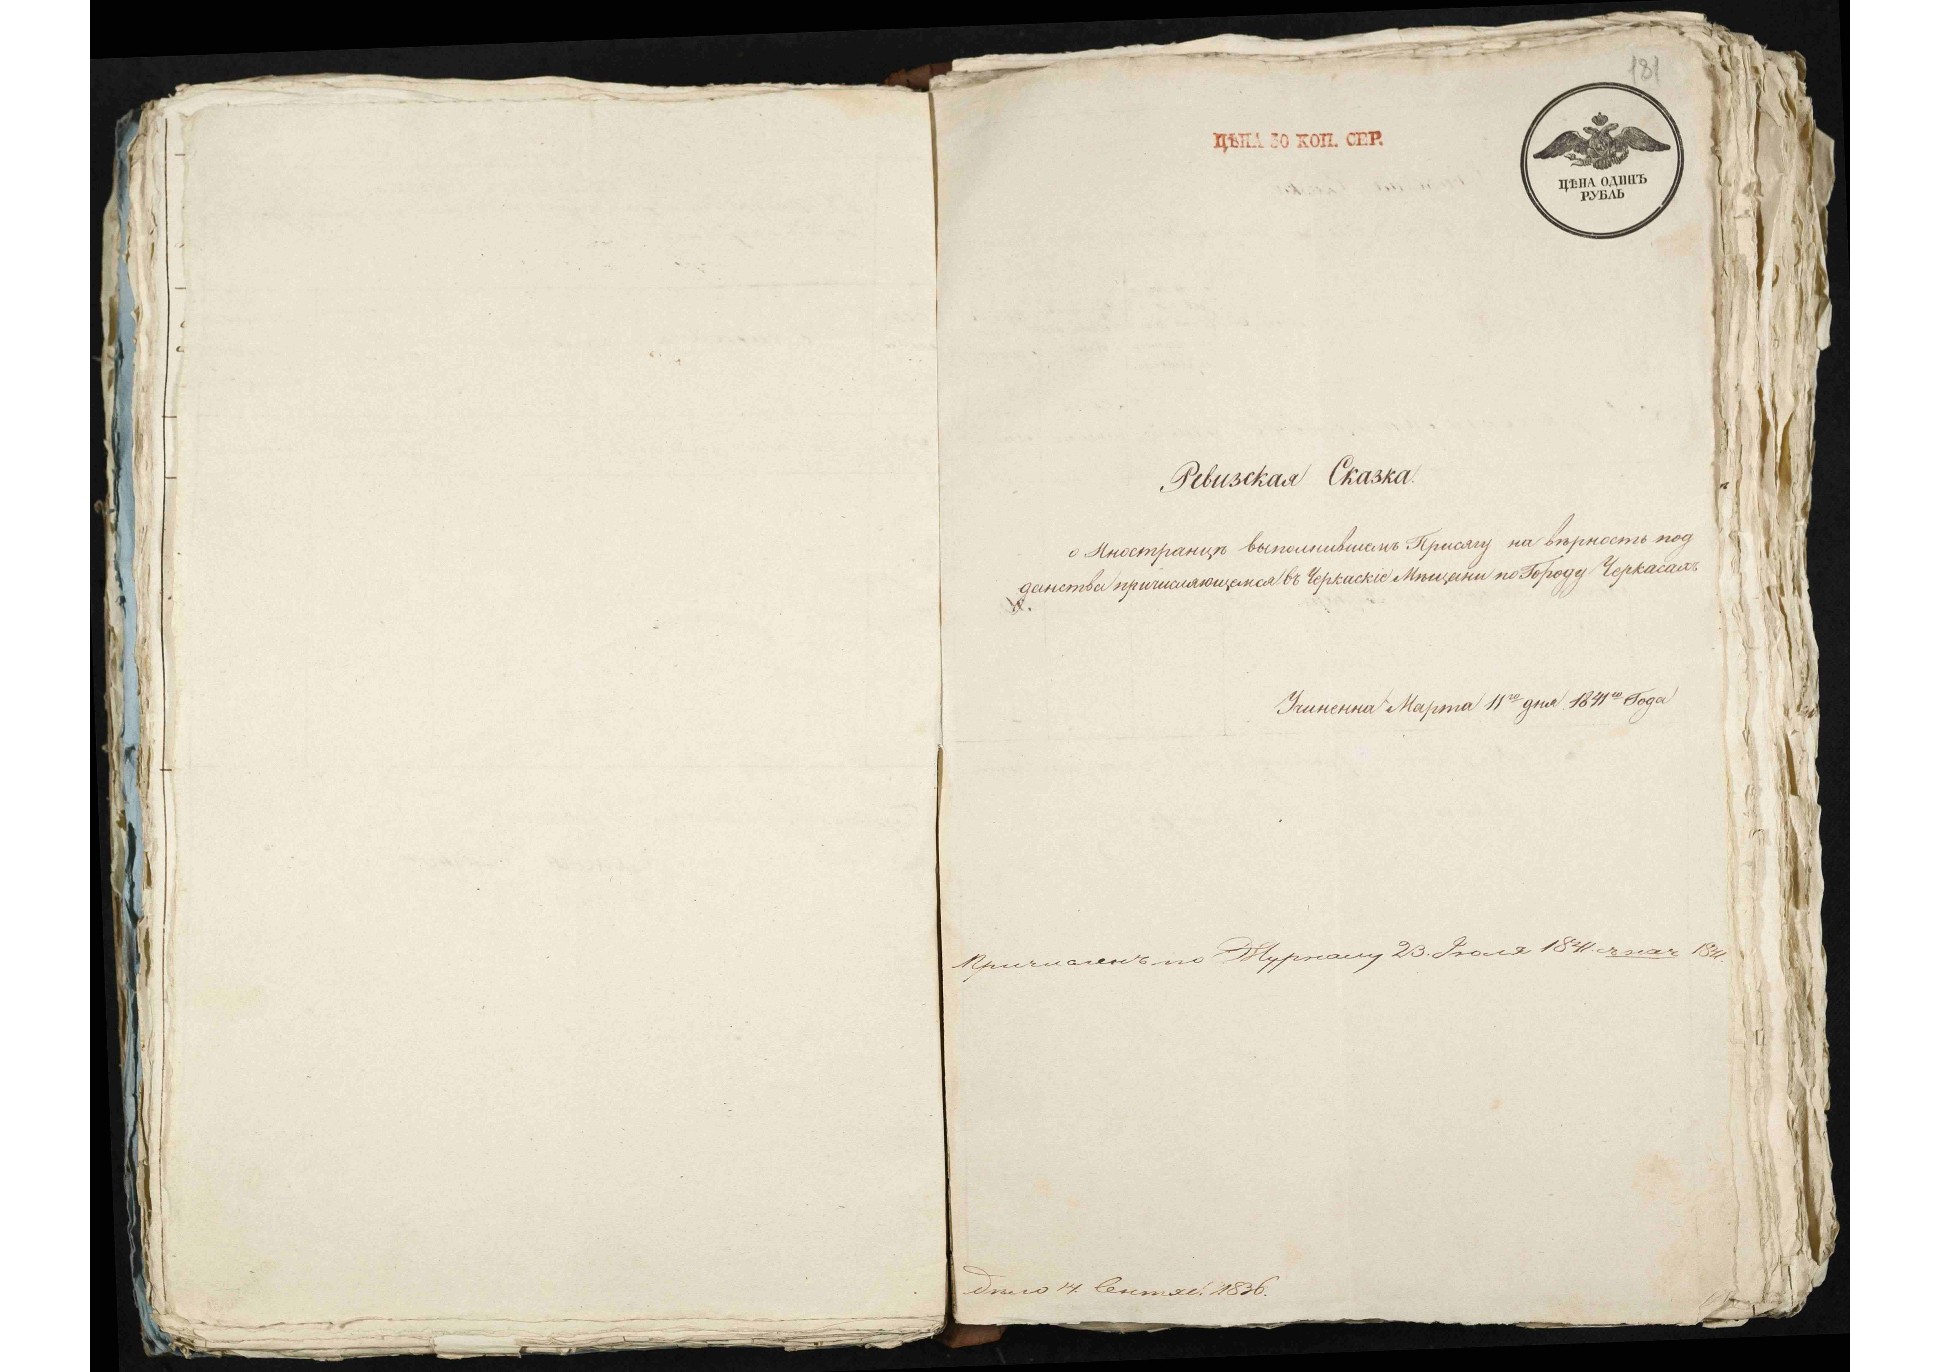 181
ЦѢНА 30 КОП. СЕР.
ЦѢНА ОДИНЪ
РУБЛЬ
Ревизская Сказка
о Иностранцѣ выполнившемъ Присягу на вѣрность под
данства причисляющемся въ Черкаскіе Мѣщани по Городу Черкасахъ
Учиненна Марта 11го дня 1841го Года
Причисленъ по Журналу 23. Іюля 1841. 1841.
Дѣло 14. Сентяб. 1836.